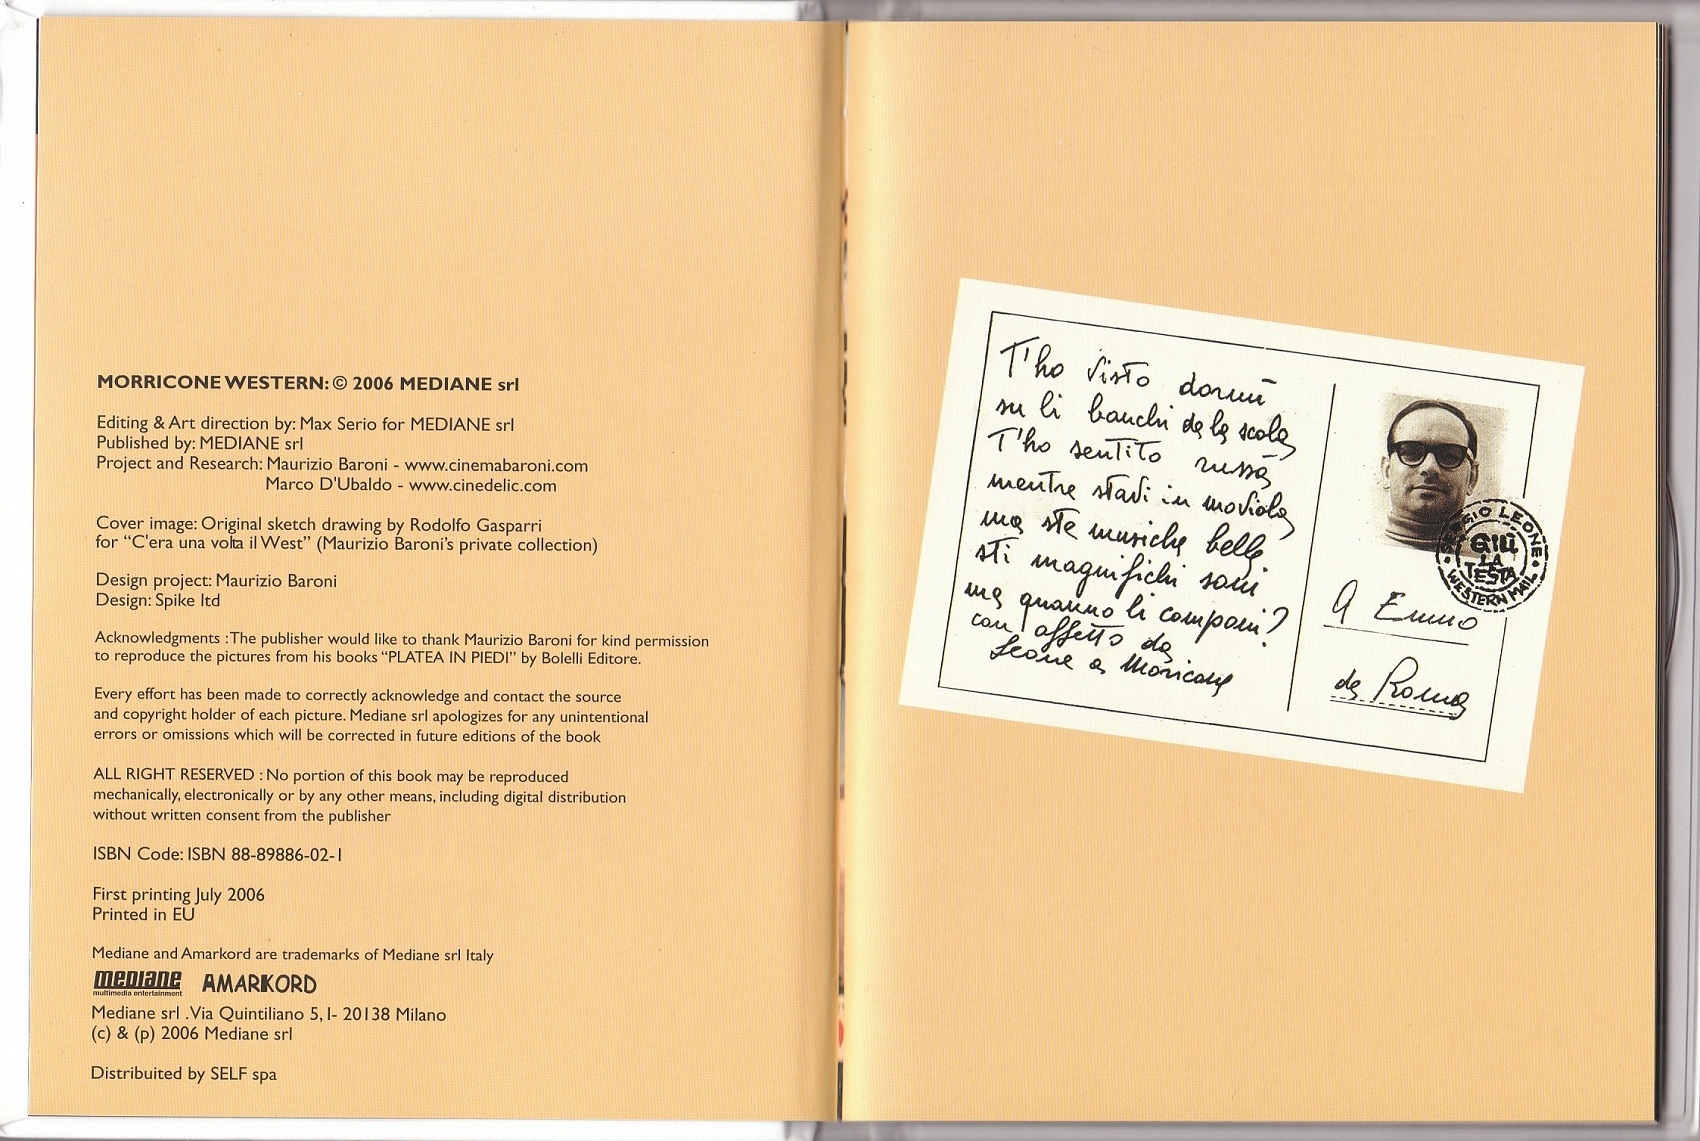 MORRICONE WESTERN: © 2006 MEDIANE srl
Editing & Art direction by: Max Serio for MEDIANE srl
Published by: MEDIANE srl
Project and Research: Maurizio Baroni - www.cinemabaroni.com
Marco D'Ubaldo - www.cinedelic.com
Cover image: Original sketch drawing by Rodolfo Gasparri
for “C'era una volta il West” (Maurizio Baroni's private collection)
Design project: Maurizio Baroni
Design: Spike ltd
Acknowledgments : The publisher would like to thank Maurizio Baroni for kind permission
to reproduce the pictures from his books “PLATEA IN PIEDI” by Bolelli Editore.
Every effort has been made to correctly acknowledge and contact the source
and copyright holder of each picture. Mediane srl apologizes for any unintentional
errors or omissions which will be corrected in future editions of the book
ALL RIGHT RESERVED : No portion of this book may be reproduced
mechanically, electronically or by any other means, including digital distribution
without written consent from the publisher
ISBN Code: ISBN 88-89886-02-1
First printing July 2006
Printed in EU
Mediane and Amarkord are trademarks of Mediane srl Italy
mediane AMARKORD
multimedia entertainment
Mediane srl . Via Quintiliano 5, I- 20138 Milano
(c) & (p) 2006 Mediane srl
Distribuited by SELF spa
T'ho visto dormì
su li banchi de la scola
T'ho sentito russà
mentre stavi in moviola
ma ste musiche belle
sti magnifichi soni
ma quanno li componi?
con affetto da
Leone a Moricone
SERGIO LEONE
GIÙ
LA
TESTA
WESTERN MAIL
A Ennio
da Roma